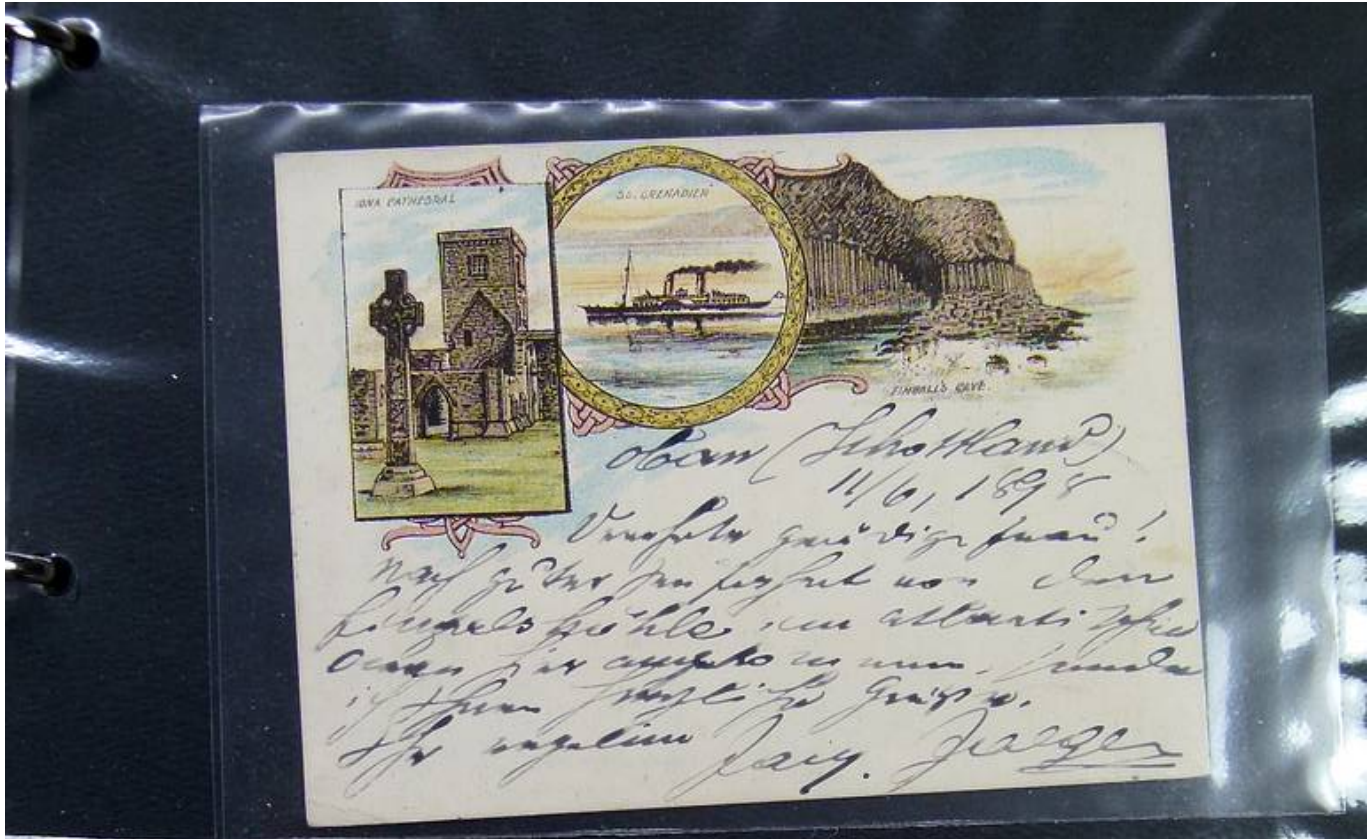 IONA CATHEDRAL
S.S. GRENADIER
FINGALL'S CAVE
Oban (Schottland)
11/6, 1898
Verehrte gnädige Frau!
Nach guter Seefahrt von der
Fingalshöhle im atlantischen
Ocean hier angekommen, sende
ich Ihnen herzliche Grüße.
Ihr